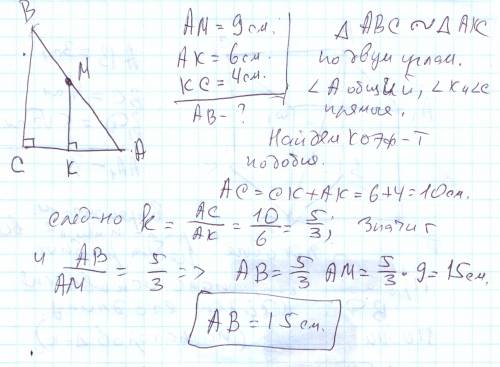 B
M
C
K
A
AM = 9 см.
AK = 6 см.
KC = 4 см.
AB - ?
△ ABC ~ △ AKC
по двум углам.
∠A общий, ∠K и ∠C
прямые.
Найдем коэф-т
подобия.
AC = CK + AK = 6 + 4 = 10 см.
след-но k = AC/AK = 10/6 = 5/3; значит
и AB/AM = 5/3 => AB = 5/3 AM = 5/3 · 9 = 15 см.
AB = 15 см.